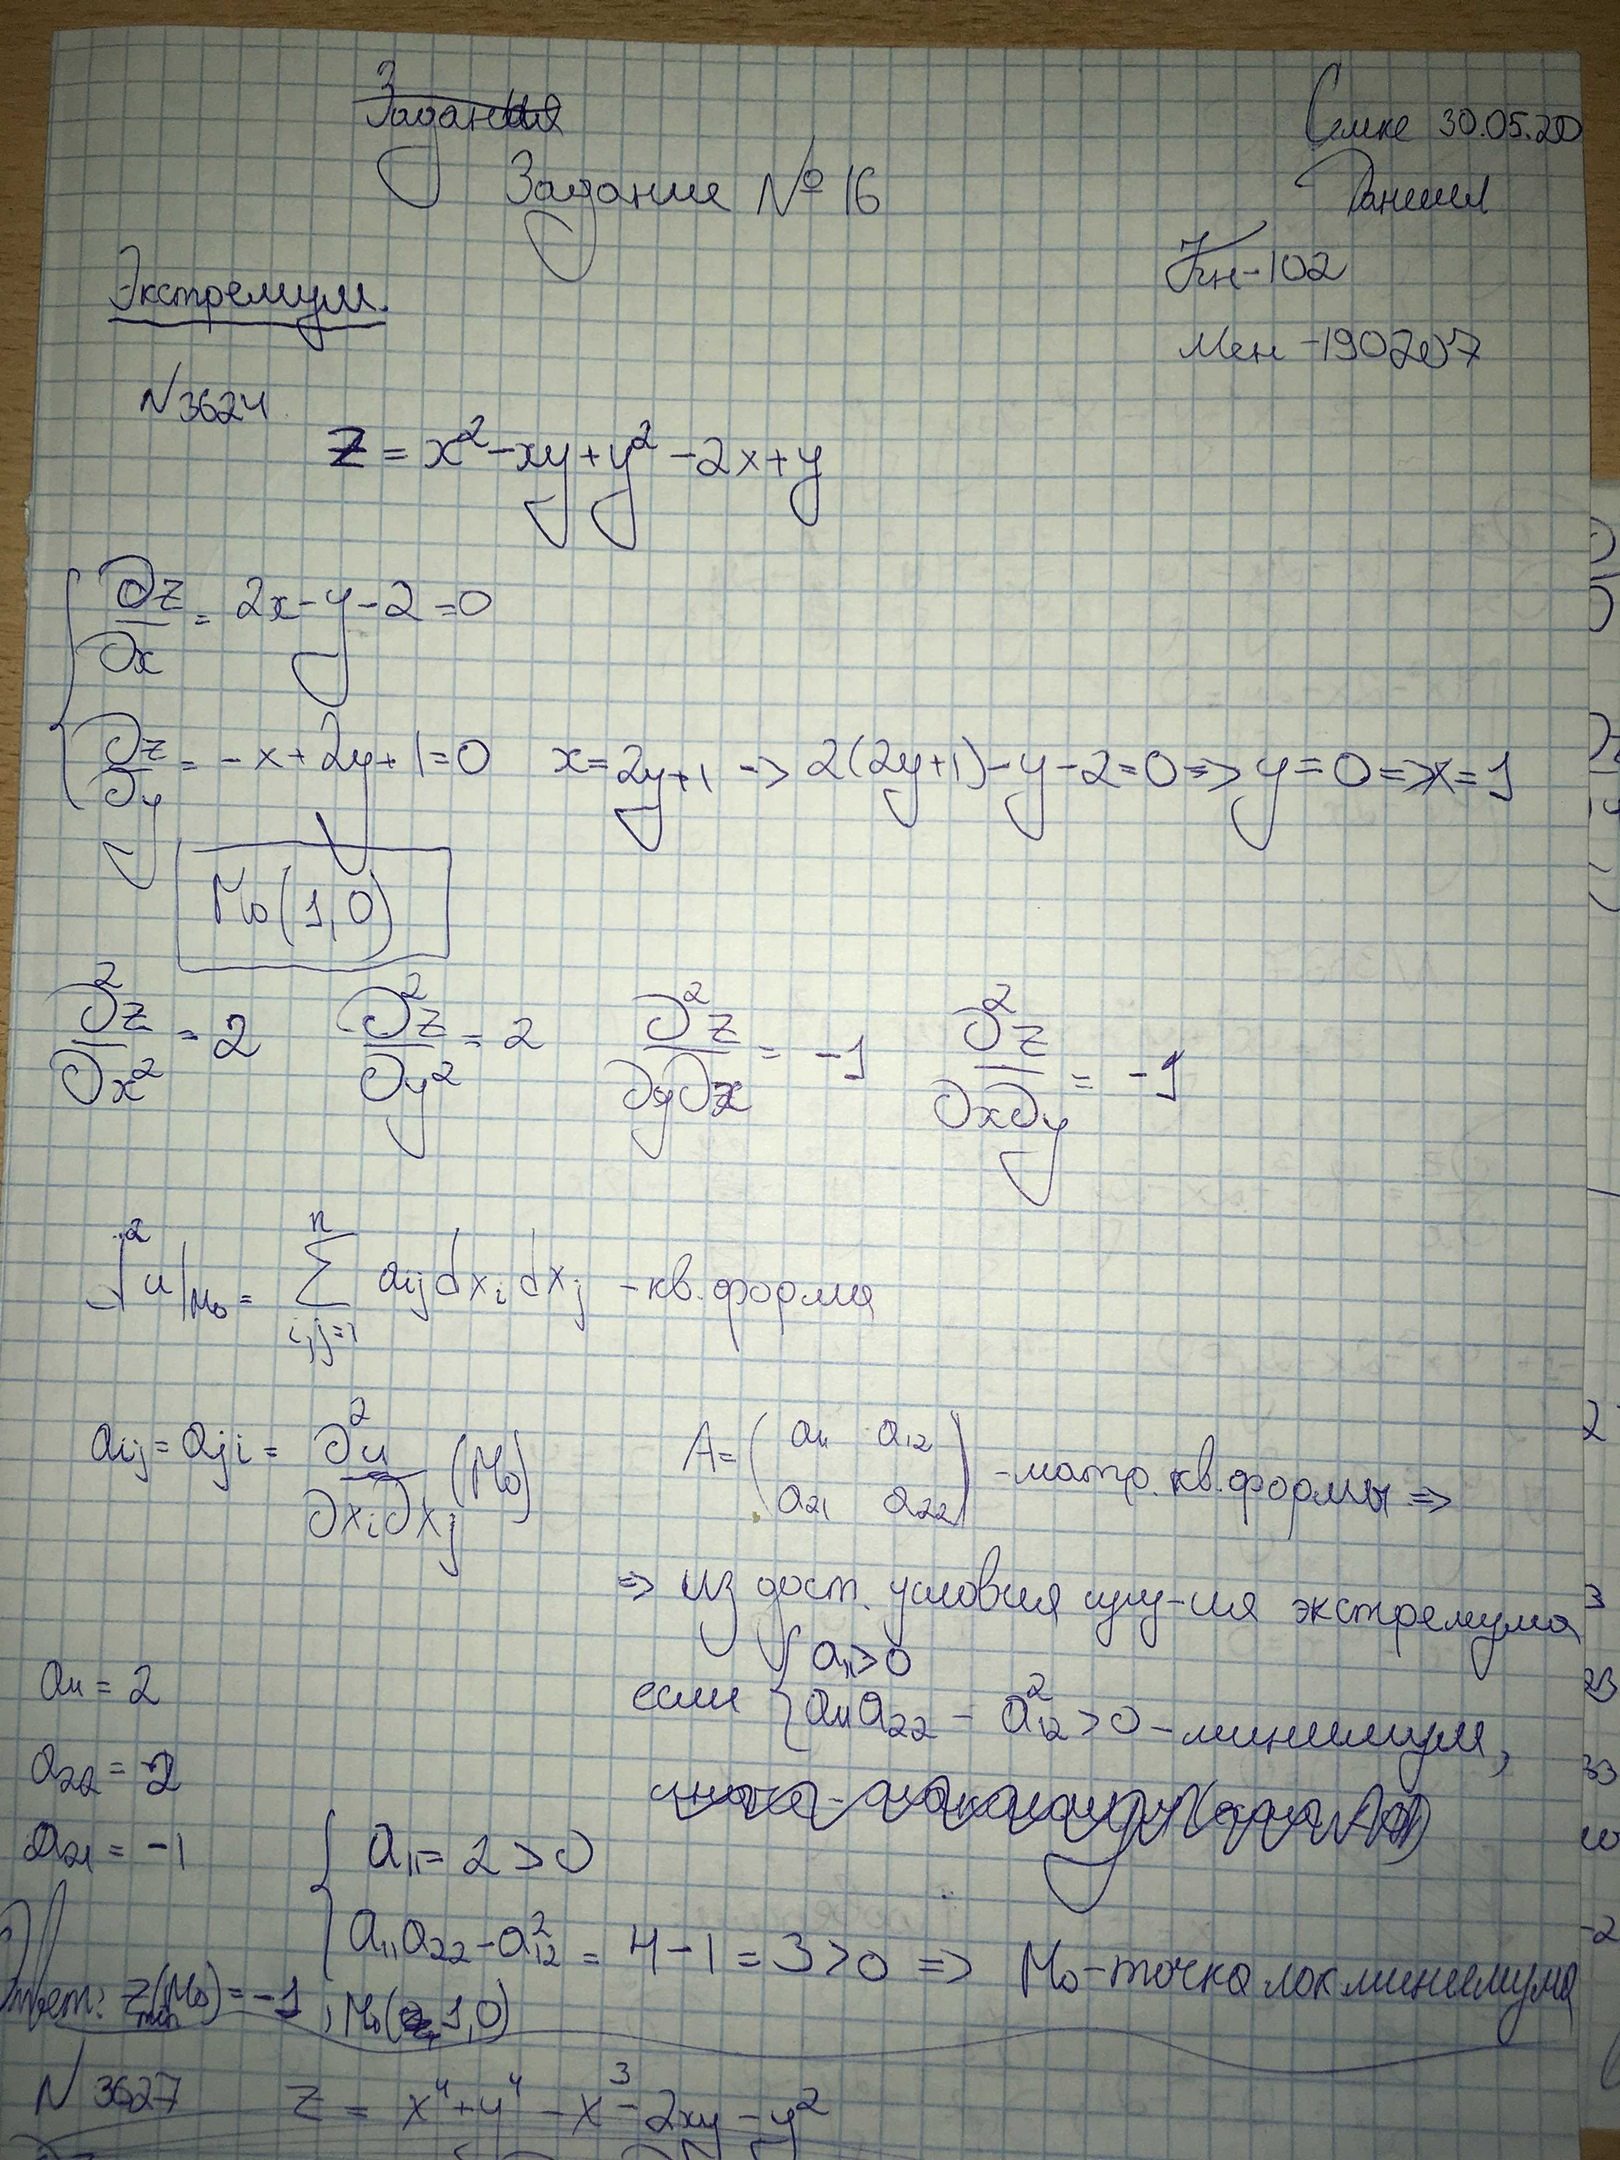 Задание № 16
Семке 30.05.20
Даниил
Кн-102
Мен-190207
Экстремум.
N3624
z = x² - xy + y² - 2x + y
{ ∂z/∂x = 2x - y - 2 = 0
∂z/∂y = -x + 2y + 1 = 0 x = 2y+1 -> 2(2y+1) - y - 2 = 0 => y = 0 => x = 1
M₀(1,0)
∂²z/∂x² = 2 ∂²z/∂y² = 2 ∂²z/∂y∂x = -1 ∂²z/∂x∂y = -1
d²u|M₀ = Σ^n_{i,j=1} aij dxi dxj - кв. форма
aij = aji = ∂²u/∂xi∂xj (M₀) A = (a₁₁ a₁₂ a₂₁ a₂₂) - матр. кв. формы =>
=> из дост. условия сущ-ия экстремума
если { a₁₁ > 0
a₁₁a₂₂ - a²₁₂ > 0 - минимум,
a₁₁ = 2
a₂₂ = 2
a₂₁ = -1
{ a₁₁ = 2 > 0
a₁₁a₂₂ - a²₁₂ = 4 - 1 = 3 > 0 => M₀ - точка лок минимума
Ответ: z min (M₀) = -1, M₀(1,0)
N 3627 z = x⁴ + y⁴ - x³ - 2xy - y²